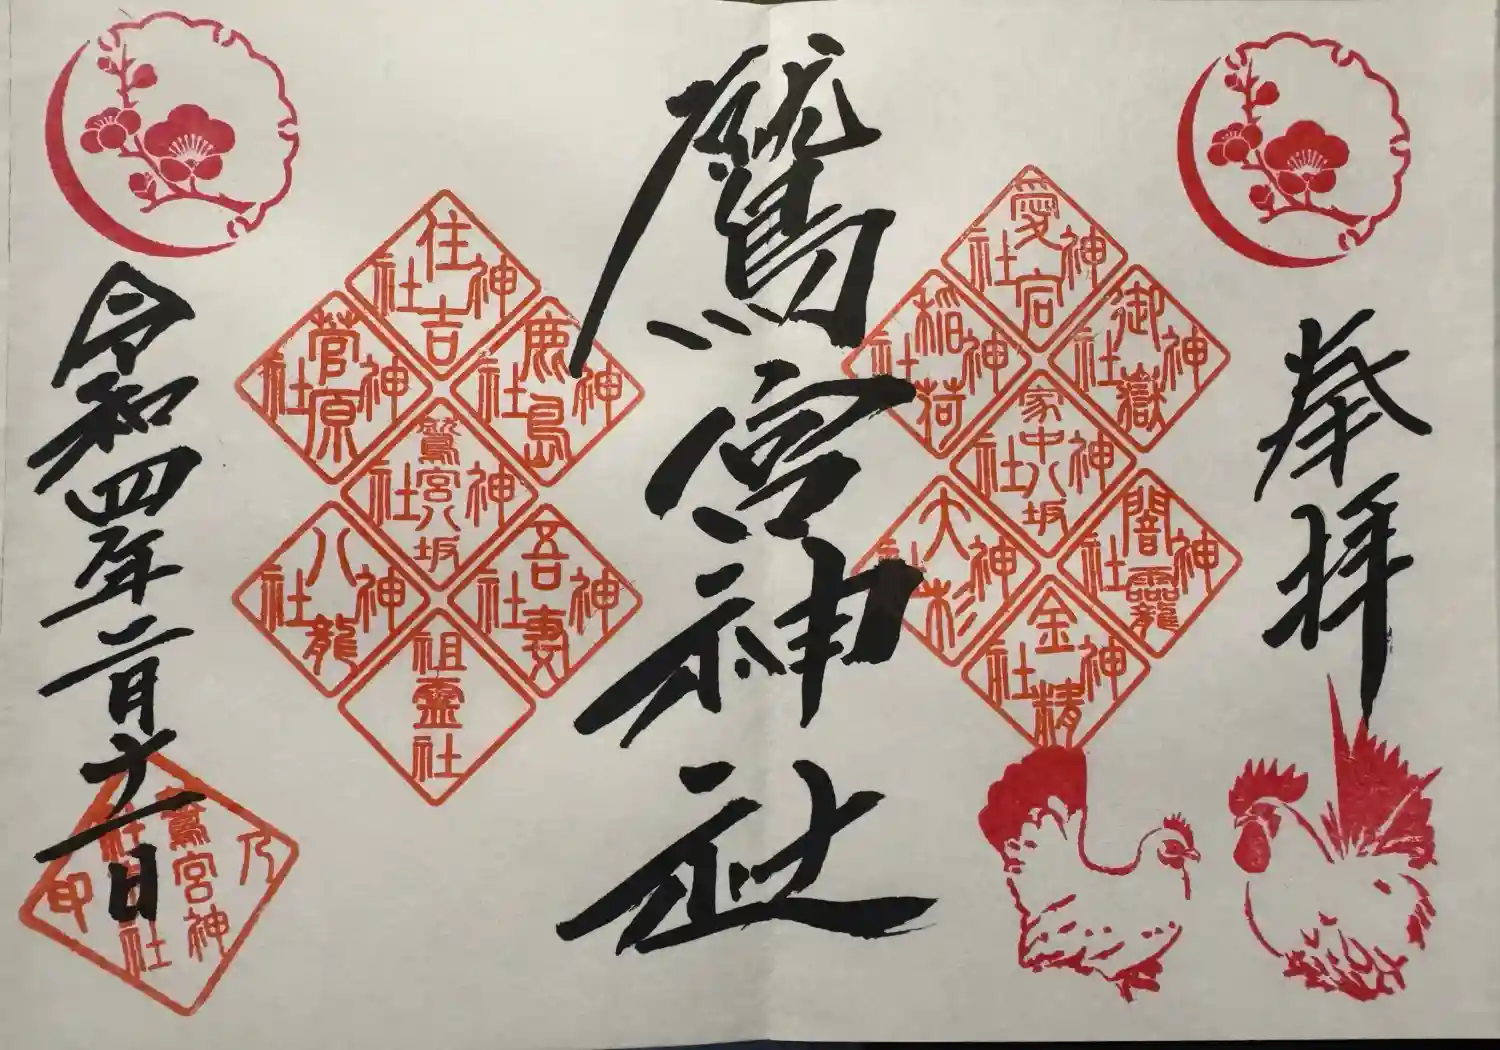 奉拝
愛宕神社
御嶽神社
稲荷神社
家中八坂神社
闇龗神社
大杉神社
金精神社
鷲宮神社
住吉神社
鹿島神社
菅原神社
鷲宮八坂神社
吾妻神社
八龍神社
祖霊社
令和四年二月十一日
鷲宮神
社
乃印